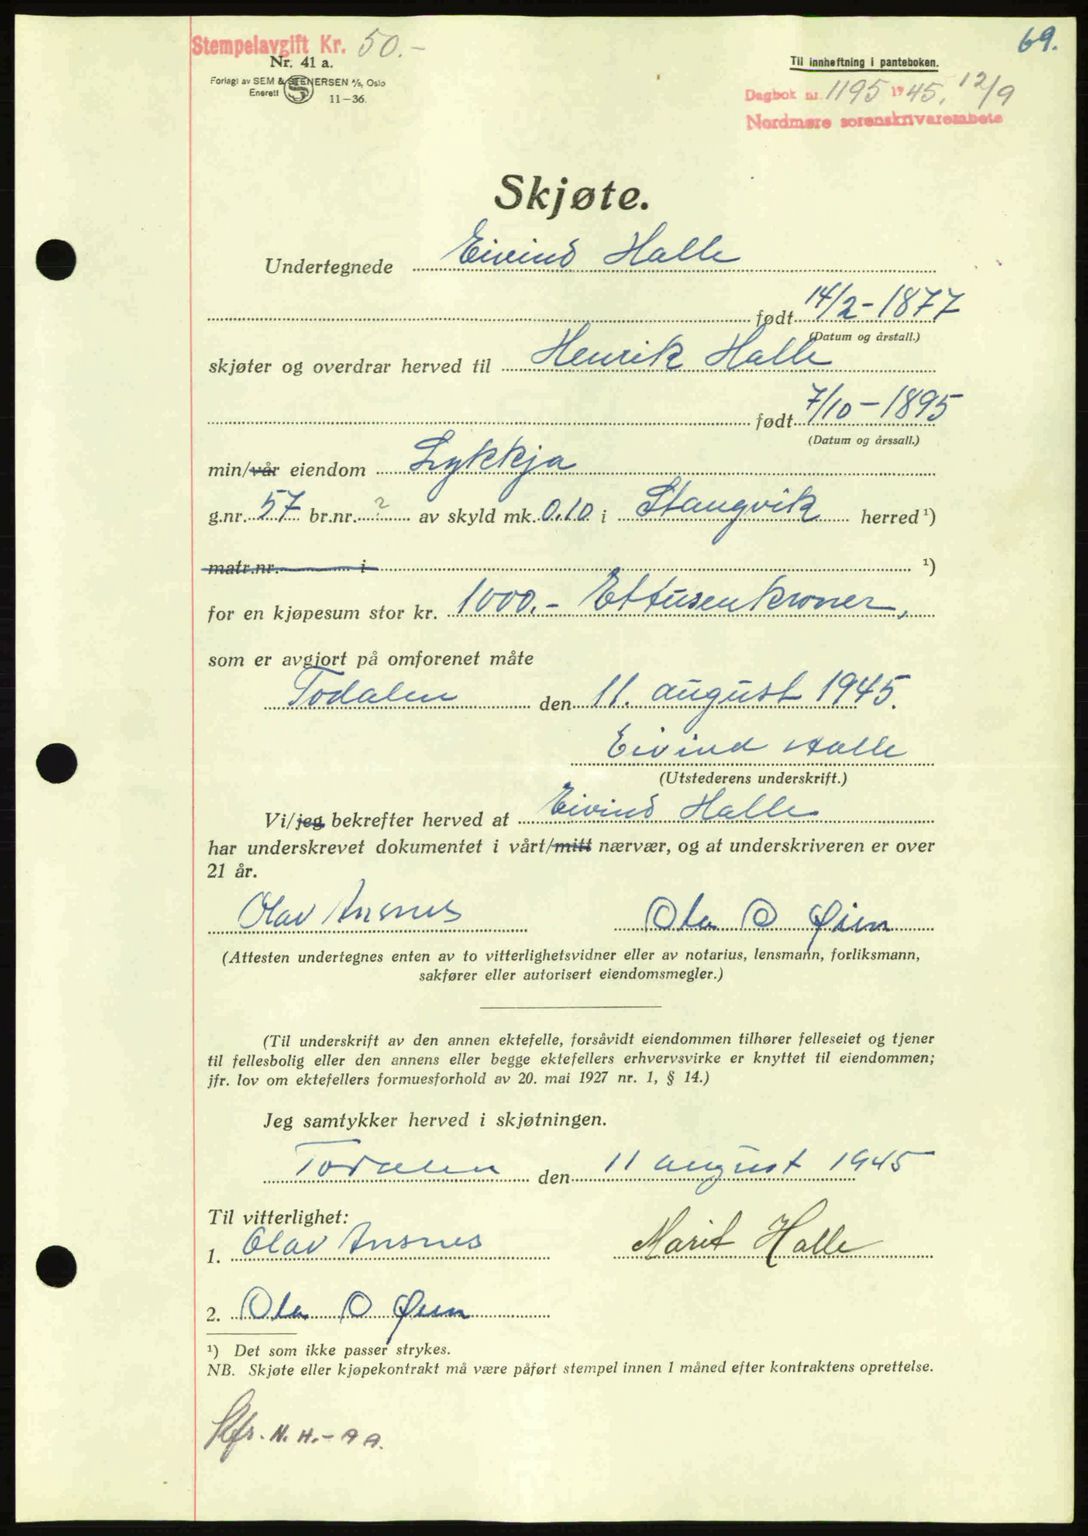 Stempelavgift Kr. 50.-
69.
Nr. 41 a.
Til innheftning i panteboken.
Forlagt av SEM & STENERSEN A/S, Oslo
Enerett
11-36.
Dagbok nr. 1195 1945, 12/9
Nordmøre sorenskriverembete
Skjøte.
Undertegnede Eivind Halle
født 14/2-1877
(Datum og årstall.)
skjøter og overdrar herved til Henrik Halle
født 7/10-1895
(Datum og årssall.)
min/vår eiendom Lykkja
g.nr. 57 br.nr. ? av skyld mk. 0.10 i Stangvik herred ¹)
matr.nr. i ¹)
for en kjøpesum stor kr. 1000.- Ettusenkroner,
som er avgjort på omforenet måte
Todalen den 11. august 1945.
Eivind Halle
(Utstederens underskrift.)
Vi/jeg bekrefter herved at Eivind Halle
har underskrevet dokumentet i vårt/mitt nærvær, og at underskriveren er over
21 år.
Olav Ansnes Ola O Øien
(Attesten undertegnes enten av to vitterlighetsvidner eller av notarius, lensmann, forliksmann,
sakfører eller autorisert eiendomsmegler.)
(Til underskrift av den annen ektefelle, forsåvidt eiendommen tilhører felleseiet og tjener
til fellesbolig eller den annens eller begge ektefellers erhvervsvirke er knyttet til eiendommen;
jfr. lov om ektefellers formuesforhold av 20. mai 1927 nr. 1, § 14.)
Jeg samtykker herved i skjøtningen.
Todalen den 11 august 1945
Til vitterlighet:
1. Olav Ansnes Marit Halle
2. Ola O Øien
¹) Det som ikke passer strykes.
NB. Skjøte eller kjøpekontrakt må være påført stempel innen 1 måned efter kontraktens oprettelse.